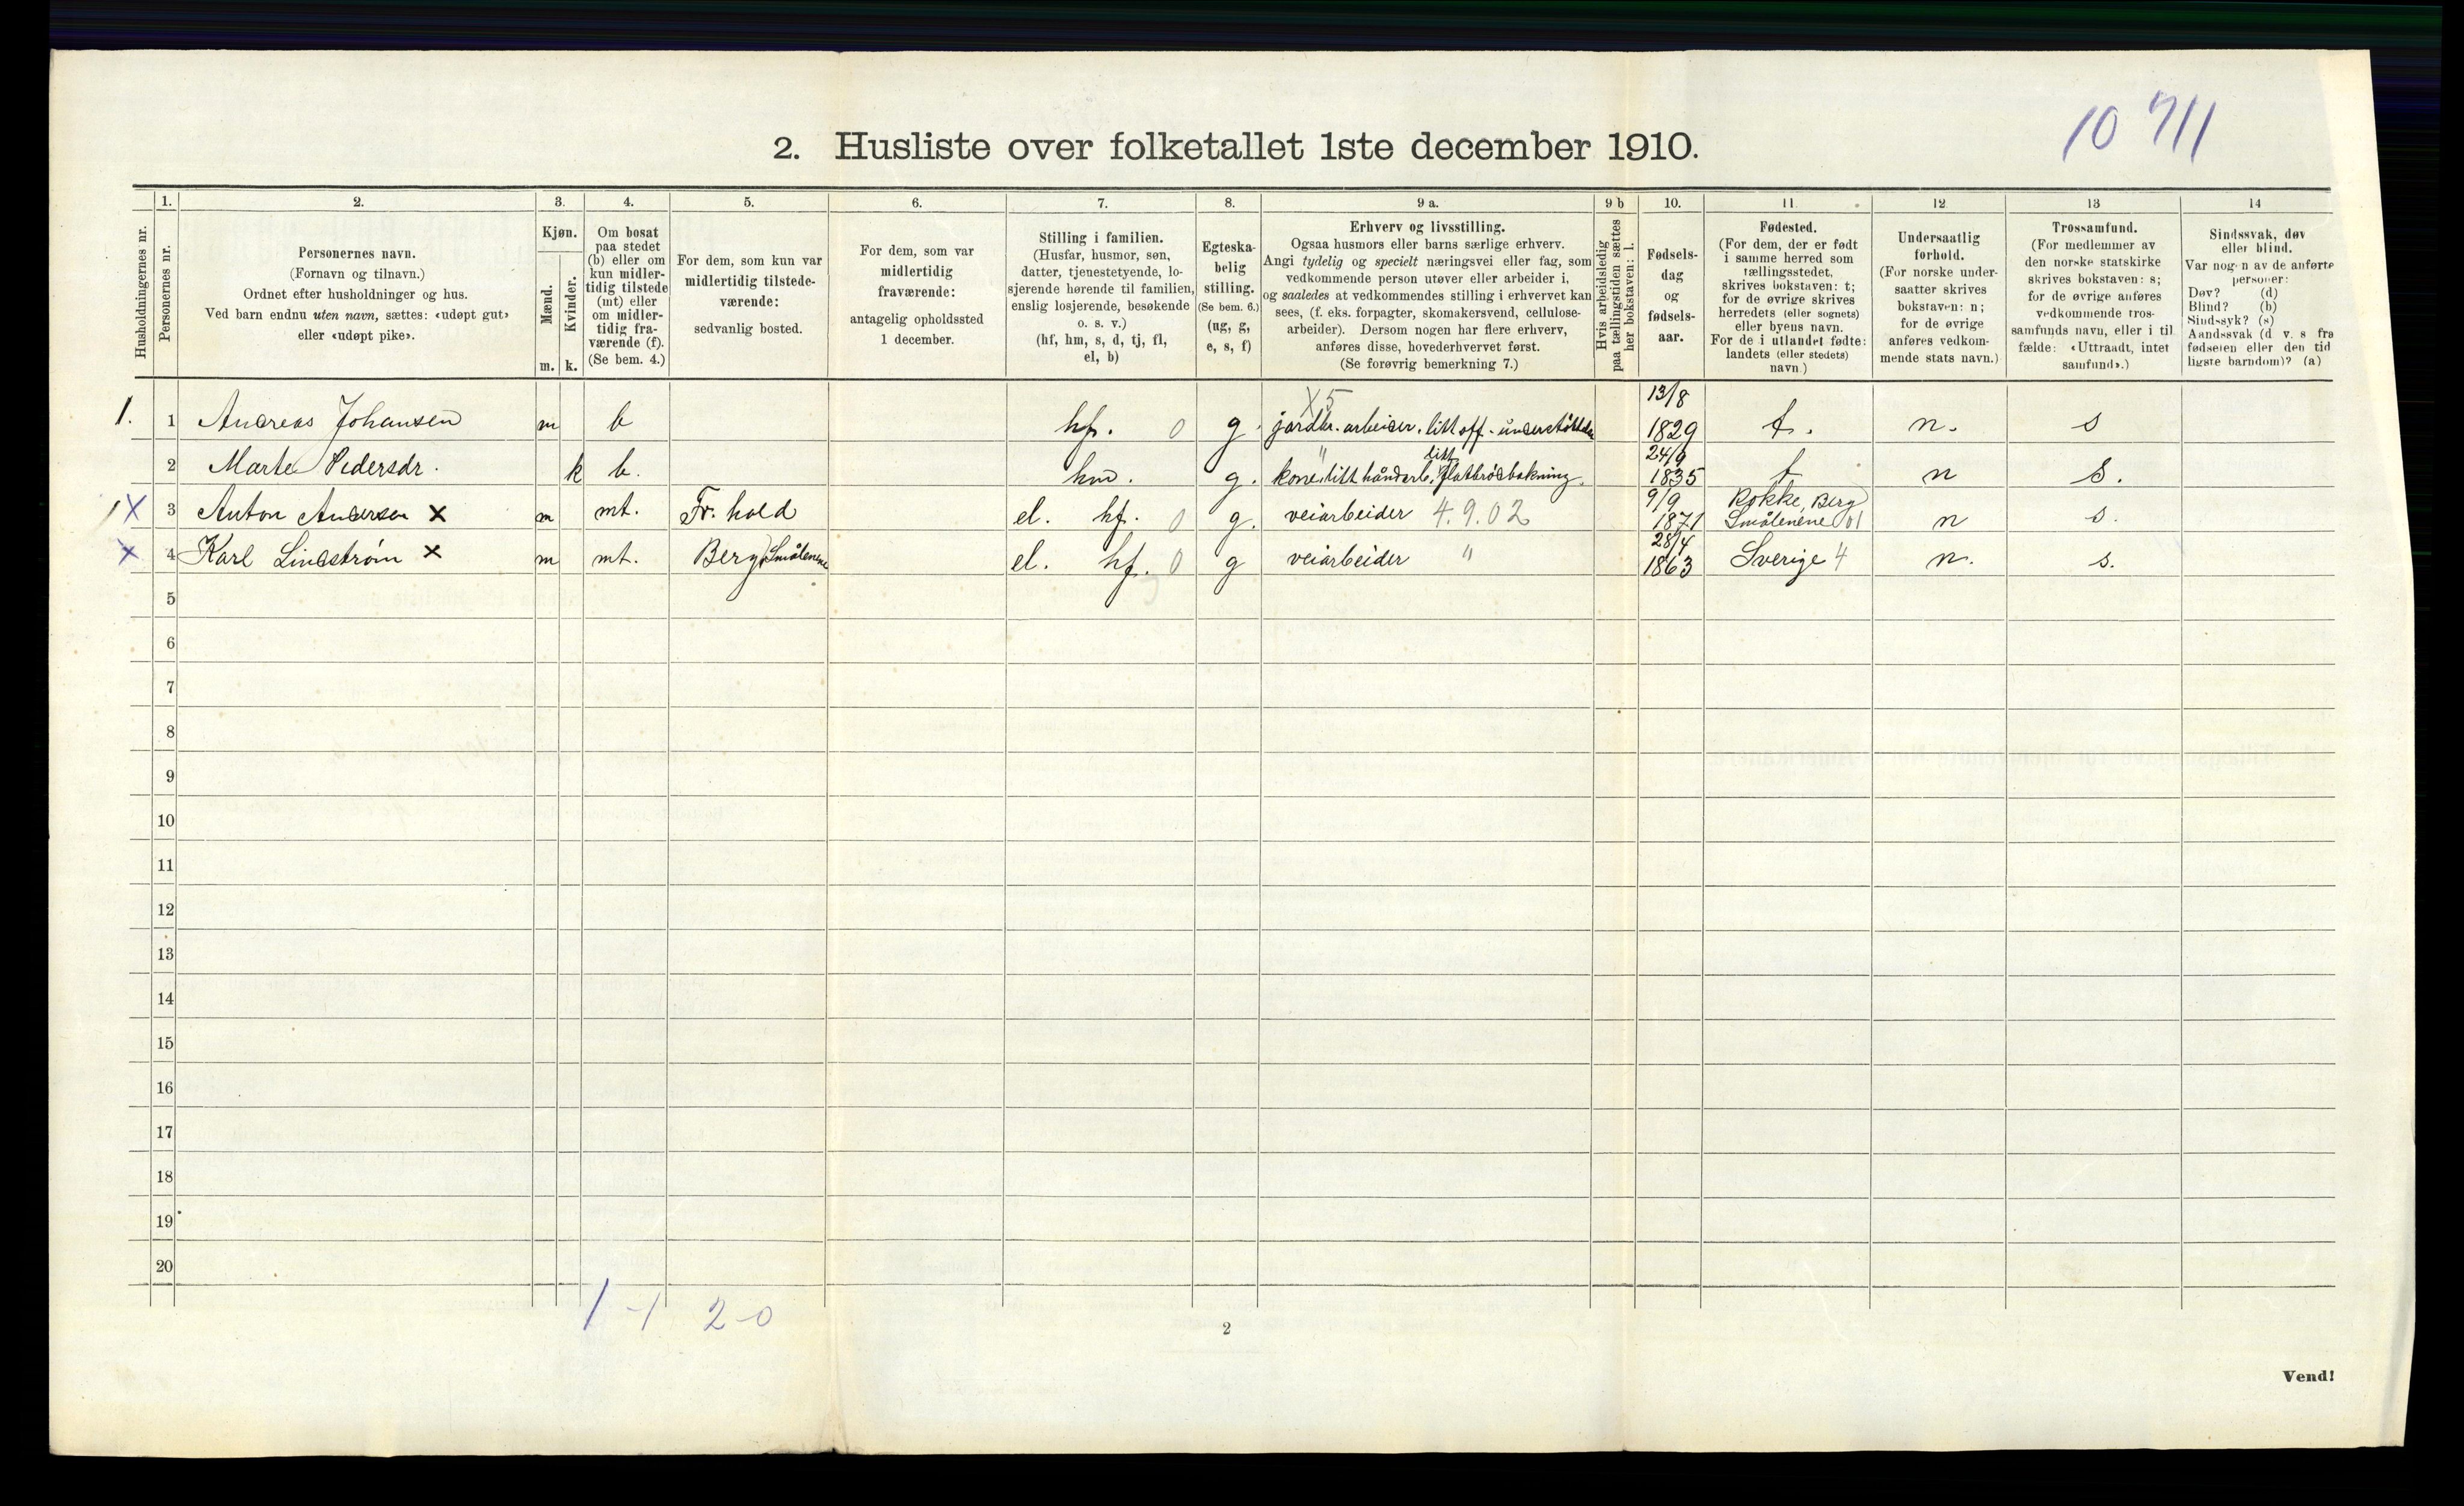 10 711
2. Husliste over folketallet 1ste december 1910.
Husholdningernes nr.
1.
Personernes nr.
2.
Personernes navn.
(Fornavn og tilnavn.)
Ordnet efter husholdninger og hus.
Ved barn endnu uten navn, sættes: «udøpt gut»
eller «udøpt pike».
3.
Kjøn.
Mænd.
m.
Kvinder.
k.
4.
Om bosat
paa stedet
(b) eller om
kun midler-
tidig tilstede
(mt) eller
om midler-
tidig fra-
værende (f).
(Se bem. 4.)
5.
For dem, som kun var
midlertidig tilstede-
værende:
sedvanlig bosted.
6.
For dem, som var
midlertidig
fraværende:
antagelig opholdssted
1 december.
7.
Stilling i familien.
(Husfar, husmor, søn,
datter, tjenestetyende, lo-
sjerende hørende til familien,
enslig losjerende, besøkende
o. s. v.)
(hf, hm, s, d, tj, fl,
el, b)
8.
Egteska-
belig
stilling.
(Se bem. 6.)
(ug, g,
e, s, f)
9 a.
Erhverv og livsstilling.
Ogsaa husmors eller barns særlige erhverv.
Angi tydelig og specielt næringsvei eller fag, som
vedkommende person utøver eller arbeider i,
og saaledes at vedkommendes stilling i erhvervet kan
sees, (f. eks. forpagter, skomakersvend, cellulose-
arbeider). Dersom nogen har flere erhverv,
anføres disse, hovederhvervet først.
(Se forøvrig bemerkning 7.)
9 b
Hvis arbeidsledig
paa tællingstiden sættes
her bokstaven: l.
10.
Fødsels-
dag
og
fødsels-
aar.
11.
Fødested.
(For dem, der er født
i samme herred som
tællingsstedet,
skrives bokstaven: t;
for de øvrige skrives
herredets (eller sognets)
eller byens navn.
For de i utlandet fødte:
landets (eller stedets)
navn.)
12
Undersaatlig
forhold.
(For norske under-
saatter skrives
bokstaven: n;
for de øvrige
anføres vedkom-
mende stats navn.)
13
Trossamfund.
(For medlemmer av
den norske statskirke
skrives bokstaven: s;
for de øvrige anføres
vedkommende tros-
samfunds navn, eller i til
fælde: «Uttraadt, intet
samfund».)
14
Sindssvak, døv
eller blind.
Var nogen av de anførte
personer:
Døv? (d)
Blind? (b)
Sindssyk? (s)
Aandssvak (d v. s fra
fødselen eller den tid
ligste barndom)? (a)
1. 1 Andreas Johansen m b hf. 0 g. X5 jordbr. arbeider. litt off. understøttelse 13/8 1829 t. n. s
2 Marte Pedersdr. k b. hm. g. " kone, litt håndarb. litt flatbrødbakning. 24/9 1835 t n s.
1X 3 Anton Andersen X m mt. Fr. hald el. hf. 0 g. veiarbeider 4.9.02 9/9 1871 Rokke, Berg Smålenene 01 n s.
X 4 Karl Lindstrøm X m mt. Berg, Smålenene el. hf. 0 g veiarbeider " 28/4 1863 Sverige 4 n. s.
5
6
7
8
9
10
11
12
13
14
15
16
17
18
19
20
1 -1 2-0
2
Vend!